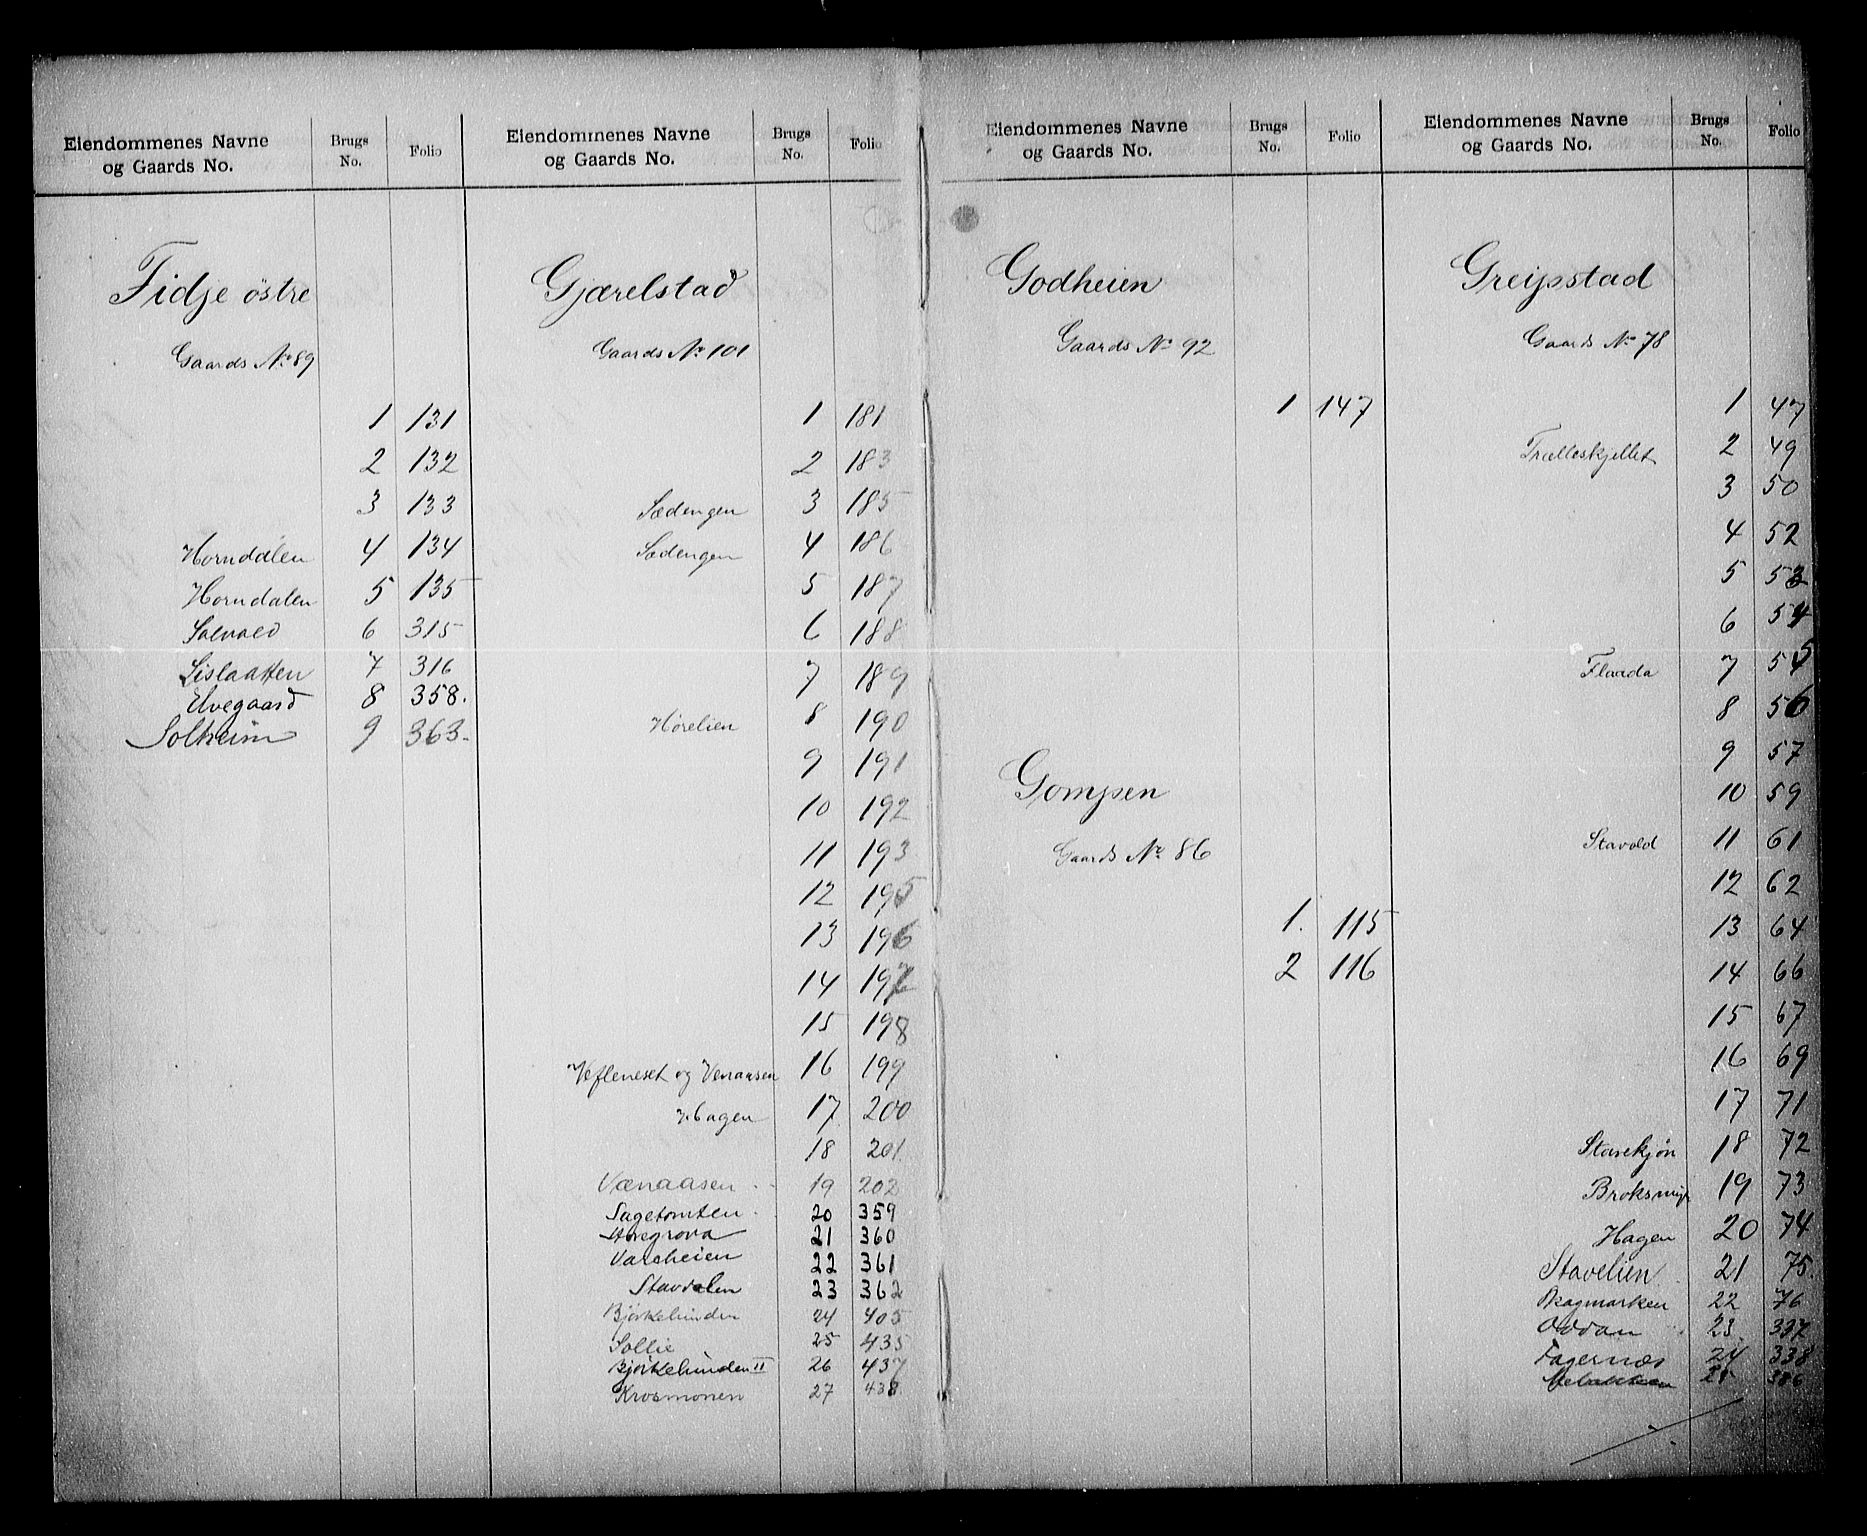 Eiendommenes Navne og Gaards No. Brugs No. Folio
Fidje östre
Gaards No 89
1 131
2 132
3 133
Horndalen 4 134
Horndalen 5 135
6 315
Lislaatten 7 316
Elvegaard 8 358.
Solheim 9 363.
Eiendommenes Navne og Gaards No. Brugs No. Folio
Gjærelstad
Gaards No 101
1 181
2 183
Sædengen 3 185
Sædengen 4 186
5 187
6 188
7 189
Hørelien 8 190
9 191
10 192
11 193
12 195
13 196
14 197
15 198
Vefleneset og Venaasen 16 199
Hagen 17 200
18 201
Vænaasen 19 202
Sagetomten 20 359
21 360
Vareheien 22 361
Stavdalen 23 362
24 405
Sollie 25 435
26 437
Krosmonen 27 438
Eiendommenes Navne og Gaards No. Brugs No. Folio
Godheien
Gaards No 92
1 147
Gompen
Gaards No 86
1. 115
2 116
Eiendommenes Navne og Gaards No. Brugs No. Folio
Greipstad
Gaards No 78
1 47
Trælleskjellet 2 49
3 50
4 52
5 53
6 54
Flaada 7 55
8 56
9 57
10 59
Stavold 11 61
12 62
13 64
14 66
15 67
16 69
17 71
18 72
Broksmyr 19 73
Hagen 20 74
Stavelien 21 75.
22 76
Oddan 23 337
Fagernæs 24 338
25 386